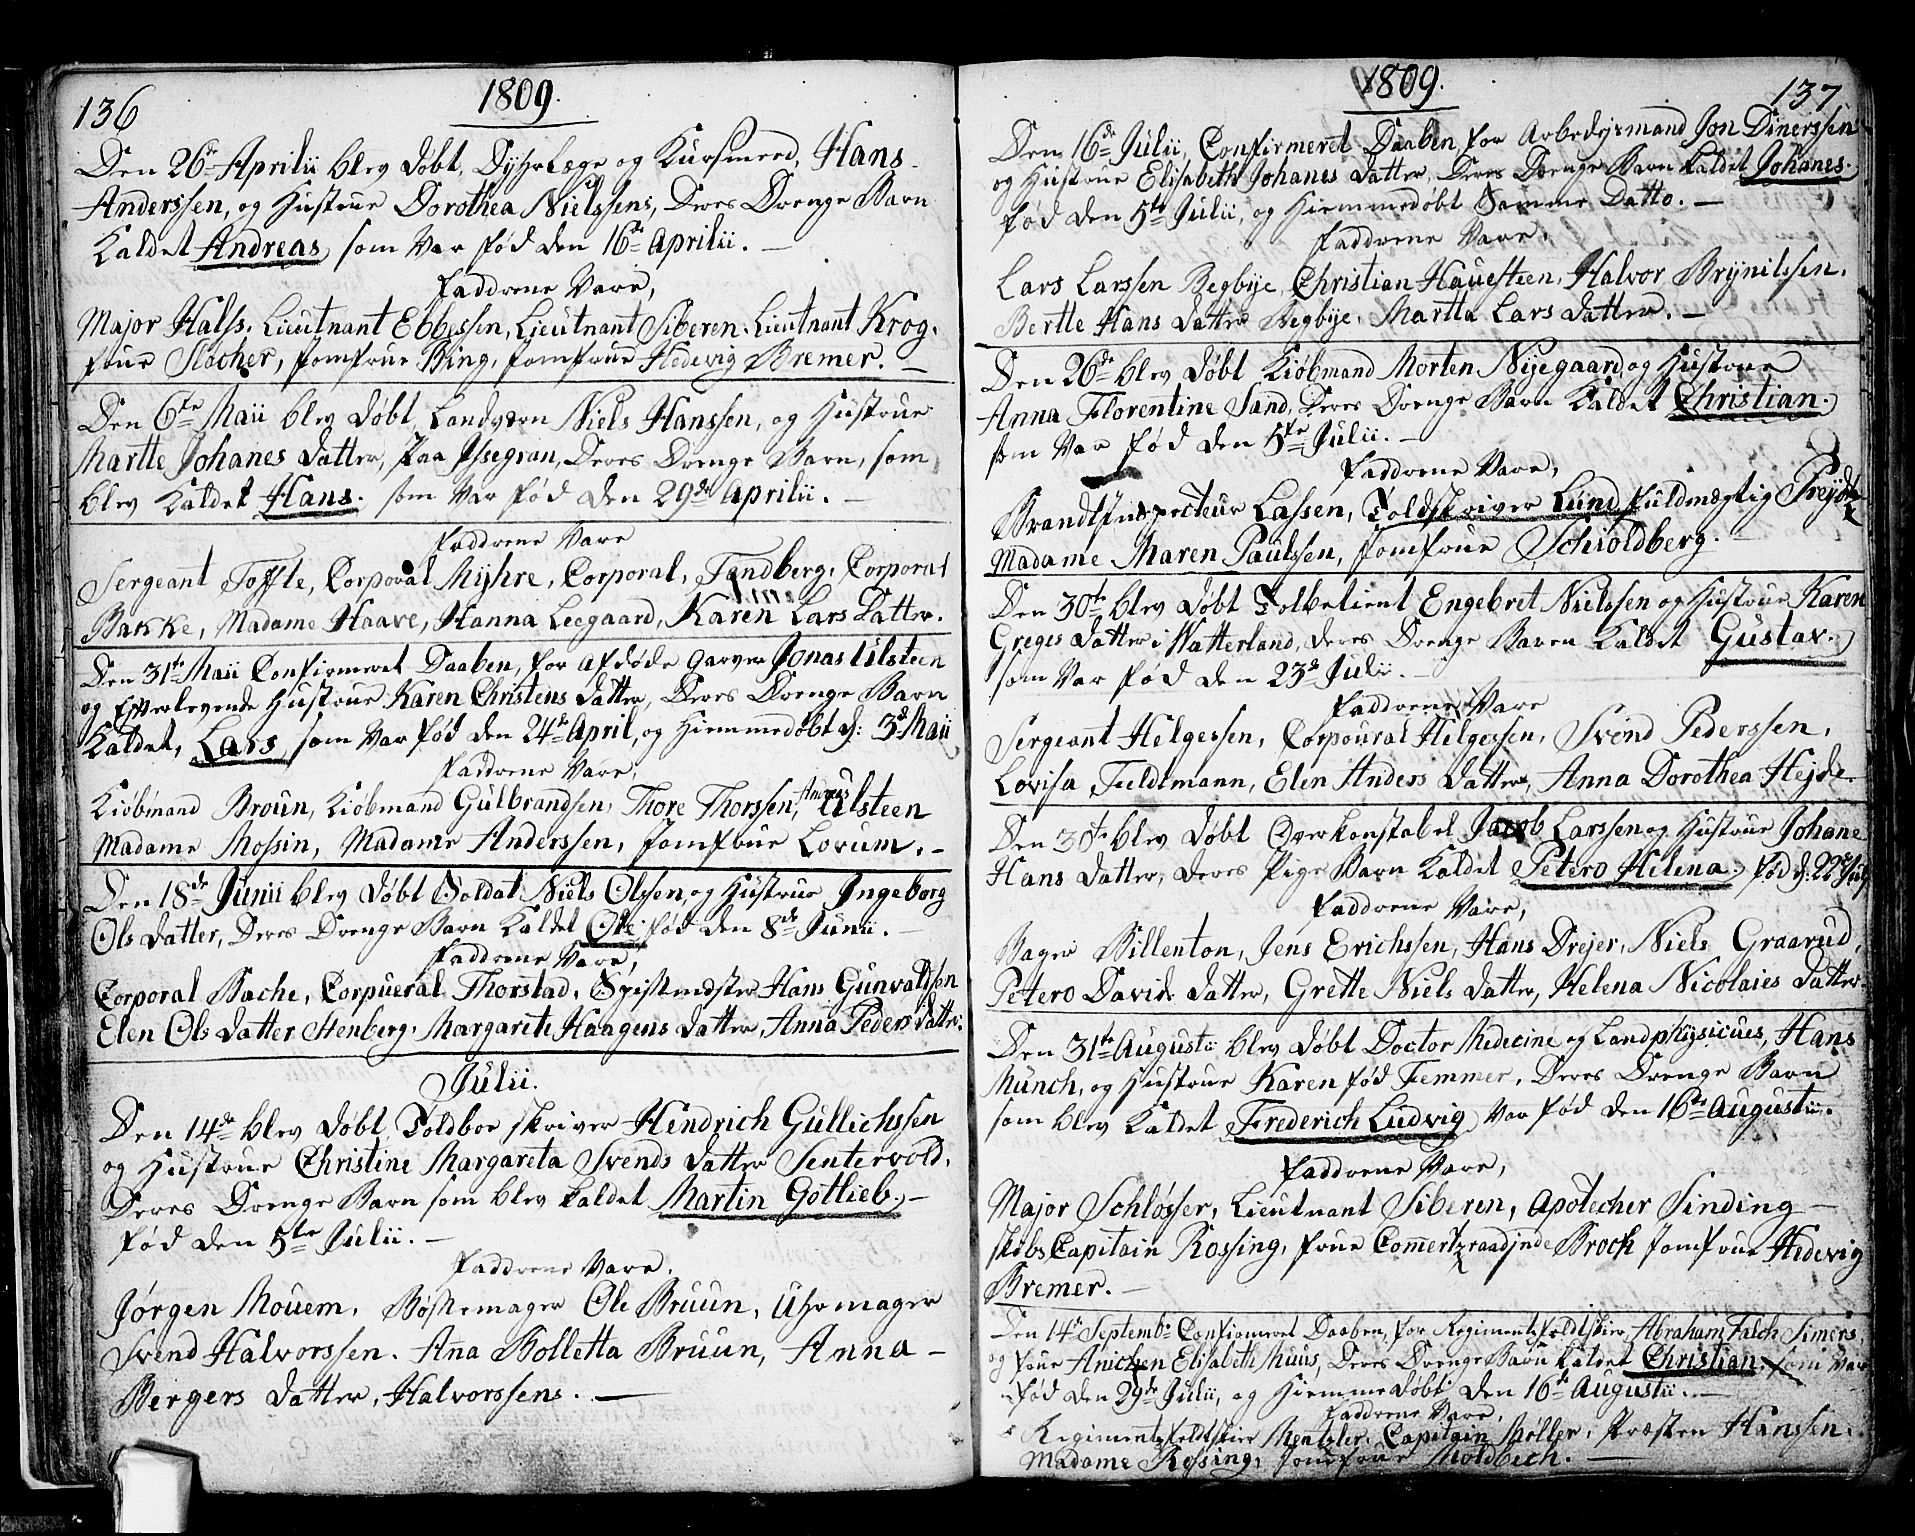 136
1809.
Den 26de Aprilii blev døbt, Dyhrlæge og Kursmeed, Hans
Anderssen, og Hustrue Dorothea Nielssens, Deres Drenge Barn
Kaldet Andreas, som Var fød den 16de Aprilii. —
Faddrene Vare,
Major Halss. Lieutnant Ebbessen, Lieutnant Siberen. Lieutnant Krog.
frue Slocher, Jomfrue Bing, Jomfrue Hedevig Bremer. —
Den 6te Maii blev døbt, Landværn Niels Hanssen, og Hustrue
Marthe Johanes datter, Paa Issegran, Deres Drenge Barn, som
blev Kaldet Hans. som Var fød den 29de Aprilii. —
Faddrene Vare
Sergeant Toffte, Corporal Myhre, Corporal, Tandberg, Corporal
Bakke, Madame Haave, Hanna Leegaard, Karen Lars Datter.
Den 31te Maii Confirmeret Daaben, for afdøde Garver Jonas Ulsteen
og Efterlevende Hustrue Karen Christens datter, Deres Drenge Barn
Kaldet, Lars, som Var fød den 24de April, og Hiemmedøbt d: 3de Maii
Faddrene Vare,
Kiøbmand Broun, Kiøbmand Gulbrandsen, Thore Thorssen, Andreas Ulsteen
Madame Mossin, Madame Anderssen, Jomfrue Lorum. —
Den 18de Junii blev døbt Soldat Niels Olssen, og Hustrue Ingeborg
Ols datter, Deres Drenge Barn Kaldet Ole, fød den 8de Junii. —
Faddrene Vare,
Corporal Bache, Corpueral Thorstad, Hans Gunvaldsen
Elen Ols datter Stenberg. Margarete Haagens datter, Anna Peders datter.
Julii.
Den 14de blev døbt, Toldboe skriver Hindrich Gullichssen
og Hustrue Christine Margareta Svends datter Sentervold,
Deres Drenge Barn som blev kaldet Martin Gotlieb. —
fød den 5te Julii. —
Faddrene Vare,
Jørgen Mouem, Bøssemager Ole Bruun, Uhrmager
Svend Halvorssen. Ana Bolletta Bruun, Anna —
Bergers datter, Halvorssens. —
1809.
137
Den 16de Julii, Confirmeret Daaben for Arbedsmand Jon Dinerssen
og Hustrue Elisabeth Johanes datter, Deres Drenge Barn kaldet Johanes.
fød den 5te Julii, og Hiemmedøbt Samme Datto. —
Faddrene Vare,
Lars Larssen Begbye, Christian Hauesteen, Halvor Brynilssen.
Berthe Hans datter Begbye. Martha Lars datter. —
Den 26de blev døbt Kiøbmand Morten Nyegaard, og Hustrue
Anna Florentine Sand, Deres Drenge Barn Kaldet Christian.
som Var fød den 5te Julii. —
Faddrene Vare,
Brandtinspecteur Lassen, Toldskriver Lund, fuldmægtig
Madame Maren Paulssen, Jomfrue Schioldberg. —
Den 30te blev døbt Tolbetient Engebret Nielssen og Hustrue Karen
Greges datter i Watterland, deres Drenge Baren Kaldet Gustav.
som Var fød den 23de Julii. —
Faddrene Vare
Sergeant Helgessen, Corpoural Helgessen, Svend Pederssen,
Lovisa Fieldtmann, Elen Anders datter, Anna Dorothea Hejde
Den 30te blev døbt Overkonstabel Jacob Larssen og Hustrue Johane
Hans datter, deres Pige Barn Kaldet Petero Helena. fød d: 22de July
Faddrene Vare,
Bager Billenton, Jens Erichssen, Hans Drejer, Niels Graarud,
Petero Davids datter, Grette Niels datter, Helena Nicolaies datter.
Den 31te Augustii blev døbt Doctor Medecine og Landphysicues, Hans
Munch, og Hustrue Karen fød Femmer, Deres Drenge Barn
som blev Kaldet Frederich Ludvig, Var fød den 16de Augustii.
Faddrene Vare,
Major Schløsser, Lieutnant Siberen, Apotecher Sinding —
skibs Capitain Rossing, frue Comertzraadinde Broch Jomfrue Hedevig
Bremer. —
Den 14de Septembr Confirmeret Daaben, for Regimentsfeldtskier Abraham Falch Simers,
og frue Anichen Elisabeth Muus, Deres Drenge Barn Kaldet Christian. som Var
fød den 29de Julii, og Hiemmedøbt den 16de Augustii. —
Faddrene Vare,
Regimentsfeldtskier Mentzler. Capitain Møller. Præsten Hanssen.
Madame Rossing, Jomfrue Moldbech. —